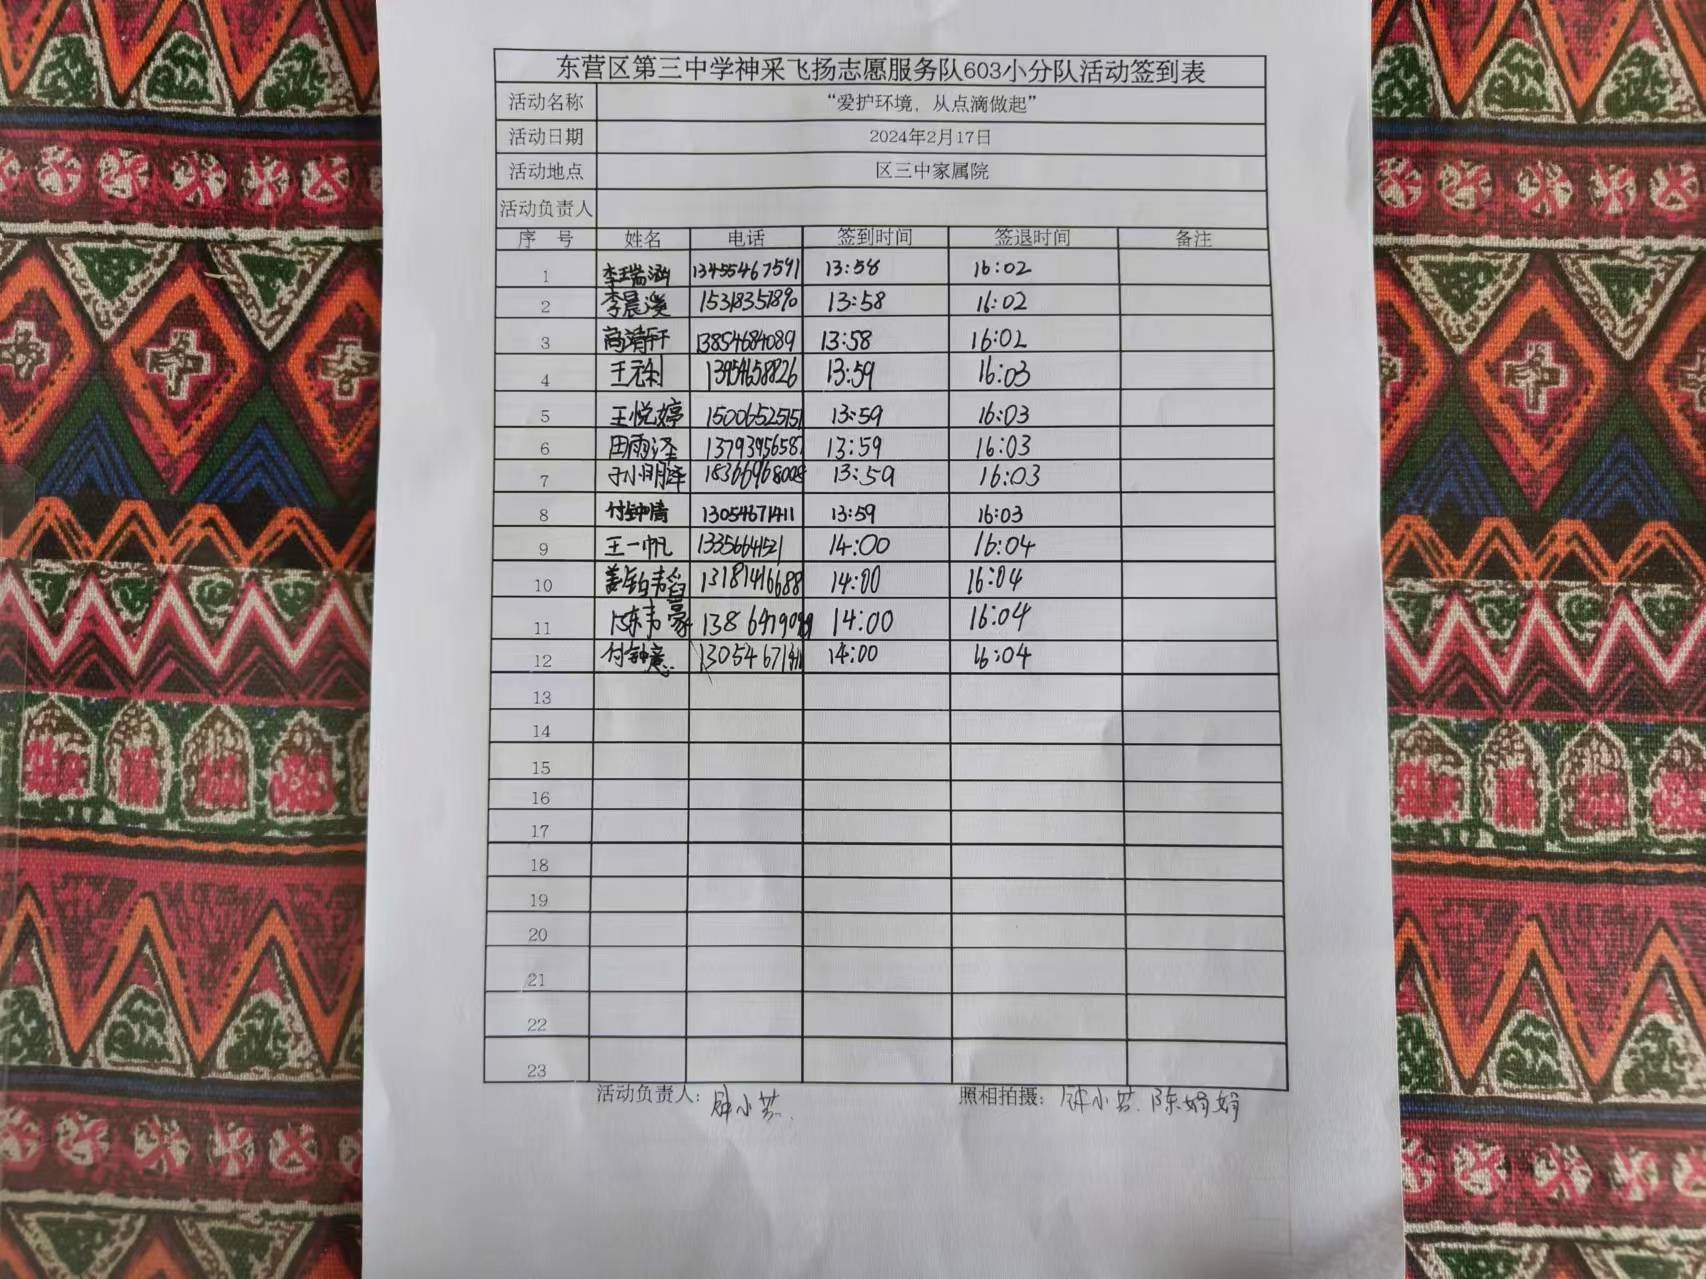 东营区第三中学神采飞扬志愿服务队603小分队活动签到表
活动名称 “爱护环境，从点滴做起”
活动日期 2024年2月17日
活动地点 区三中家属院
活动负责人
序 号 姓名 电话 签到时间 签退时间 备注
1 李瑞涵 13455467591 13:58 16:02
2 李晨溪 15318351890 13:58 16:02
3 高靖轩 13854684089 13:58 16:02
4 13954658826 13:59 16:03
5 王悦婷 15006525151 13:59 16:03
6 田雨泽 13793956587 13:59 16:03
7 13:59 16:03
8 付钟情 13054671411 13:59 16:03
9 王一帆 14:00 16:04
10 13181416688 14:00 16:04
11 陈韦豪 14:00 16:04
12 付钟意 13054671411 14:00 16:04
13
14
15
16
17
18
19
20
21
22
23
活动负责人： 钟小芸 照相拍摄： 钟小芸 陈娟娟